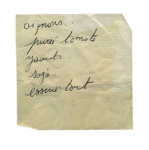 oignons.
purée tomate
yaourts
soja.
essuie tout